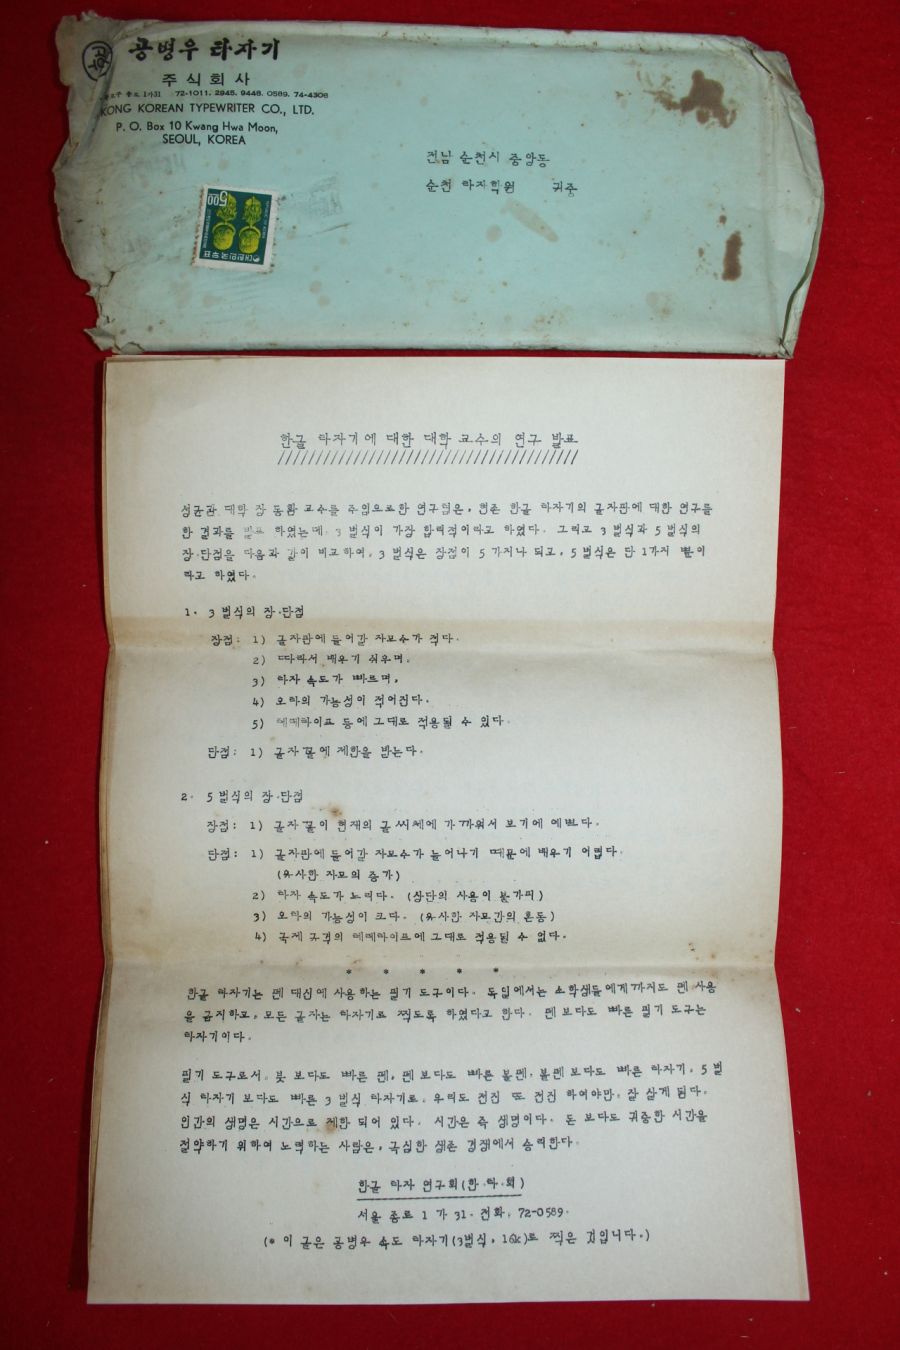 공병우 타자기
주식회사
종로 1가31 72-1011, 2945, 9448, 0589, 74-4308
KONG KOREAN TYPEWRITER CO., LTD.
P. O. Box 10 Kwang Hwa Moon,
SEOUL, KOREA
전남 순천시 중앙동
순천 타자학원 귀중
5 00
대한민국우표
한글 타자기에 대한 대학 교수의 연구 발표
////////////////////////////////////////
성균관 대학 장 동환 교수를 주임으로한 연구팀은, 현존 한글 타자기의 글자판에 대한 연구를
한 결과를 발표 하였는데, 3 벌식이 가장 합리적이라고 하였다. 그리고 3 벌식과 5 벌식의
장·단점을 다음과 같이 비교하여, 3 벌식은 장점이 5 가지나 되고, 5 벌식은 단 1가지 뿐이
라고 하였다.
1. 3 벌식의 장·단점
장점: 1) 글자판에 들어갈 자모수가 적다.
2) 따라서 배우기 쉬우며,
3) 타자 속도가 빠르며,
4) 오타의 가능성이 적어진다.
5) 테레타이프 등에 그대로 적용될 수 있다.
단점: 1) 글자 꼴에 제한을 받는다.
2. 5 벌식의 장·단점
장점: 1) 글자 꼴이 현재의 글 씨체에 가까워서 보기에 예쁘다.
단점: 1) 글자판에 들어갈 자모수가 늘어나기 때문에 배우기 어렵다.
(유사한 자모의 증가)
2) 타자 속도가 느리다. (상단의 사용이 불가피)
3) 오타의 가능성이 크다. (유사한 자모간의 혼동)
4) 국제 규격의 테레타이프에 그대로 적용될 수 없다.
* * * * *
한글 타자기는 펜 대신에 사용하는 필기 도구이다. 독일에서는 소학생들에게까지도 펜 사용
을 금지하고, 모든 글자는 타자기로 찍도록 하였다고 한다. 펜 보다도 빠른 필기 도구는
타자기이다.
필기 도구로서, 붓 보다도 빠른 펜, 펜 보다도 빠른 볼펜, 볼펜 보다도 빠른 타자기, 5 벌
식 타자기 보다도 빠른 3 벌식 타자기로, 우리도 전진 또 전진 하여야만, 잘 살게 된다.
인간의 생명은 시간으로 제한 되어 있다. 시간은 즉 생명이다. 돈 보다도 귀중한 시간을
절약하기 위하여 노력하는 사람은, 극심한 생존 경쟁에서 승리한다.
한글 타자 연구회(한·타·회)
서울 종로 1 가 31. 전화, 72-0589.
(* 이 글은 공병우 속도 타자기(3벌식, 16k)로 찍은 것입니다.)